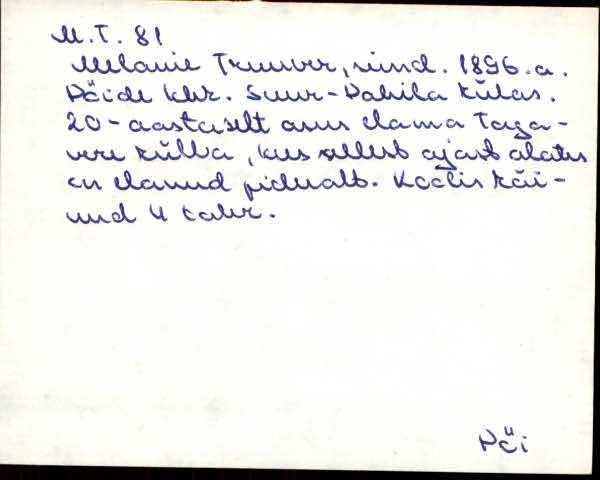 M. T. 81
Melanie Truuver, sünd. 1896. a.
Pöide khk. Suur-Pahila külas.
20-aastaselt asus elama Taga-
vere külla, kus sellest ajast alates
on elanud pidevalt. Koolis käi-
nud 4 talve.
Pöi